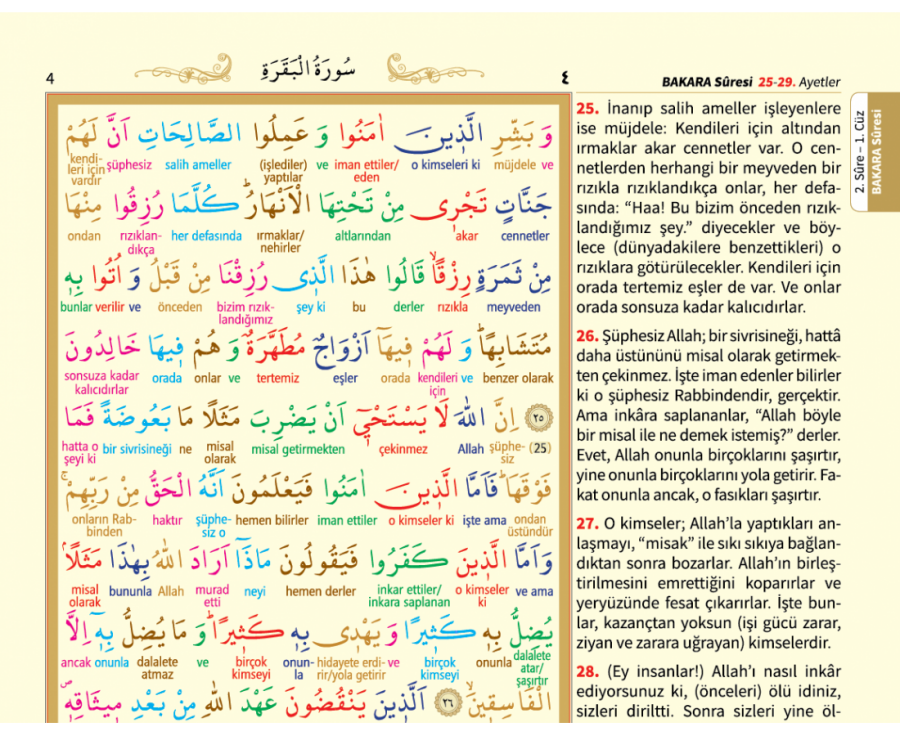 4
سُورَةُ الْبَقَرَةِ
٤
وَ بَشِّرِ الَّذٖينَ اٰمَنُوا وَ عَمِلُوا الصَّالِحَاتِ اَنَّ لَهُمْ
ve müjdele o kimseleri ki iman ettiler/eden ve (işlediler) yaptılar salih ameller şüphesiz kendileri için vardır
جَنَّاتٍ تَجْرٖى مِنْ تَحْتِهَا الْاَنْهَارُؕ كُلَّمَا رُزِقُوا مِنْهَا
cennetler akar altlarından ırmaklar/nehirler her defasında rızıklandıkça ondan
مِنْ ثَمَرَةٍ رِزْقًاۙ قَالُوا هٰذَا الَّذٖى رُزِقْنَا مِنْ قَبْلُ وَ اُتُوا بِهٖ
meyveden rızıkla derler bu şey ki bizim rızıklandığımız önceden ve verilir bunlar
مُتَشَابِهًاؕ وَ لَهُمْ فٖيهَٓا اَزْوَاجٌ مُطَهَّرَةٌۗ وَ هُمْ فٖيهَا خَالِدُونَ
benzer olarak ve kendileri için orada eşler tertemiz ve onlar orada sonsuza kadar kalıcıdırlar
﴿٢٥﴾ اِنَّ اللّٰهَ لَا يَسْتَحْيٖٓ اَنْ يَضْرِبَ مَثَلًا مَا بَعُوضَةً فَمَا
(25) şüphesiz Allah çekinmez misal getirmekten misal olarak ne bir sivrisineği hatta o şeyi ki
فَوْقَهَاؕ فَاَمَّا الَّذٖينَ اٰمَنُوا فَيَعْلَمُونَ اَنَّهُ الْحَقُّ مِنْ رَبِّهِمْۚ
ondan üstündür işte ama o kimseler ki iman ettiler hemen bilirler şüphesiz o haktır onların Rabbinden
وَاَمَّا الَّذٖينَ كَفَرُوا فَيَقُولُونَ مَاذَٓا اَرَادَ اللّٰهُ بِهٰذَا مَثَلًاۘ
ve ama o kimseler ki inkar ettiler/inkara saplanan hemen derler neyi murad etti Allah bununla misal olarak
يُضِلُّ بِهٖ كَثٖيرًاۙ وَ يَهْدٖى بِهٖ كَثٖيرًاؕ وَ مَا يُضِلُّ بِهٖٓ اِلَّا
dalalete atar/şaşırtır onunla birçok kimseyi ve hidayete erdirir/yola getirir onunla birçok kimseyi ve dalalete atmaz onunla ancak
الْفَاسِقٖينَۙ ﴿٢٦﴾ اَلَّذٖينَ يَنْقُضُونَ عَهْدَ اللّٰهِ مِنْ بَعْدِ مٖيثَاقِهٖࣕ
BAKARA Sûresi 25-29. Ayetler
25. İnanıp salih ameller işleyenlere
ise müjdele: Kendileri için altından
ırmaklar akar cennetler var. O cen-
netlerden herhangi bir meyveden bir
rızıkla rızıklandıkça onlar, her defa-
sında: “Haa! Bu bizim önceden rızık-
landığımız şey.” diyecekler ve böy-
lece (dünyadakilere benzettikleri) o
rızıklara götürülecekler. Kendileri için
orada tertemiz eşler de var. Ve onlar
orada sonsuza kadar kalıcıdırlar.
26. Şüphesiz Allah; bir sivrisineği, hattâ
daha üstününü misal olarak getirmek-
ten çekinmez. İşte iman edenler bilirler
ki o şüphesiz Rabbindendir, gerçektir.
Ama inkâra saplananlar, “Allah böyle
bir misal ile ne demek istemiş?” derler.
Evet, Allah onunla birçoklarını şaşırtır,
yine onunla birçoklarını yola getirir. Fa-
kat onunla ancak, o fasıkları şaşırtır.
27. O kimseler; Allah’la yaptıkları an-
laşmayı, “misak” ile sıkı sıkıya bağlan-
dıktan sonra bozarlar. Allah’ın birleş-
tirilmesini emrettiğini koparırlar ve
yeryüzünde fesat çıkarırlar. İşte bun-
lar, kazançtan yoksun (işi gücü zarar,
ziyan ve zarara uğrayan) kimselerdir.
28. (Ey insanlar!) Allah’ı nasıl inkâr
ediyorsunuz ki, (önceleri) ölü idiniz,
sizleri diriltti. Sonra sizleri yine öl-
2. Sûre – 1. Cüz
BAKARA Sûresi